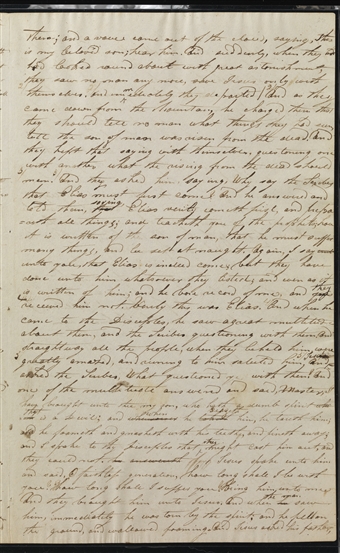 them; and a voice came out of the cloud, saying, This
is my beloved son; hear him. And suddenly, when they
had looked round about with great astonishment
they saw no man any more, save Jesus only, with
themselves. And immediately they departed. And as they
came down from the Mountain, he charged them that
they should tell no man what things they had seen,
till the son of man was risen from the dead. And
they kept that saying with themselves, questioning one
with another what the rising from the dead should
mean. And they asked him, saying, Why say the Scribes
that Elias must first come? And he answered and
told them, saying, Elias verily cometh first, and
all things; and
it is written of the son of man, that he must suffer
many things, and be set at naught. Again, I say
unto you, that Elias is indeed come, but they
done unto him whatsoever they listed; and even as it
is written of him; and he bore record of me, and they
received him not. Verily this was Elias. And when he
came to the Disciples, he saw a great multitude
about them, and the Scribes questioning with them. And
straightway all the people, when they beheld
greatly amazed, and running to him saluted him.
asked the Scribes, What questioned ye with them? And
one of the multitude answered and said, Master,
unto thee my son, who hath a dumb
is a devil; and him, he teareth him;
and he foameth and gnasheth with his teeth, and pineth away;
and I spoke to thy disciples that they might cast him out, and
they could not. Jesus spake unto him
and said, O faithless generation, how long shall I be with
you? how long shall I suffer you? Bring him unto me.
And they brought him unto Jesus; and when the man
him, immediately he was torn by the spirit; and he fell on
the ground, and wallowed foaming. And Jesus asked his father,